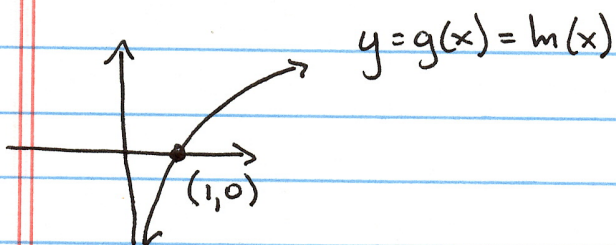 y = g(x) = ln(x)
(1,0)